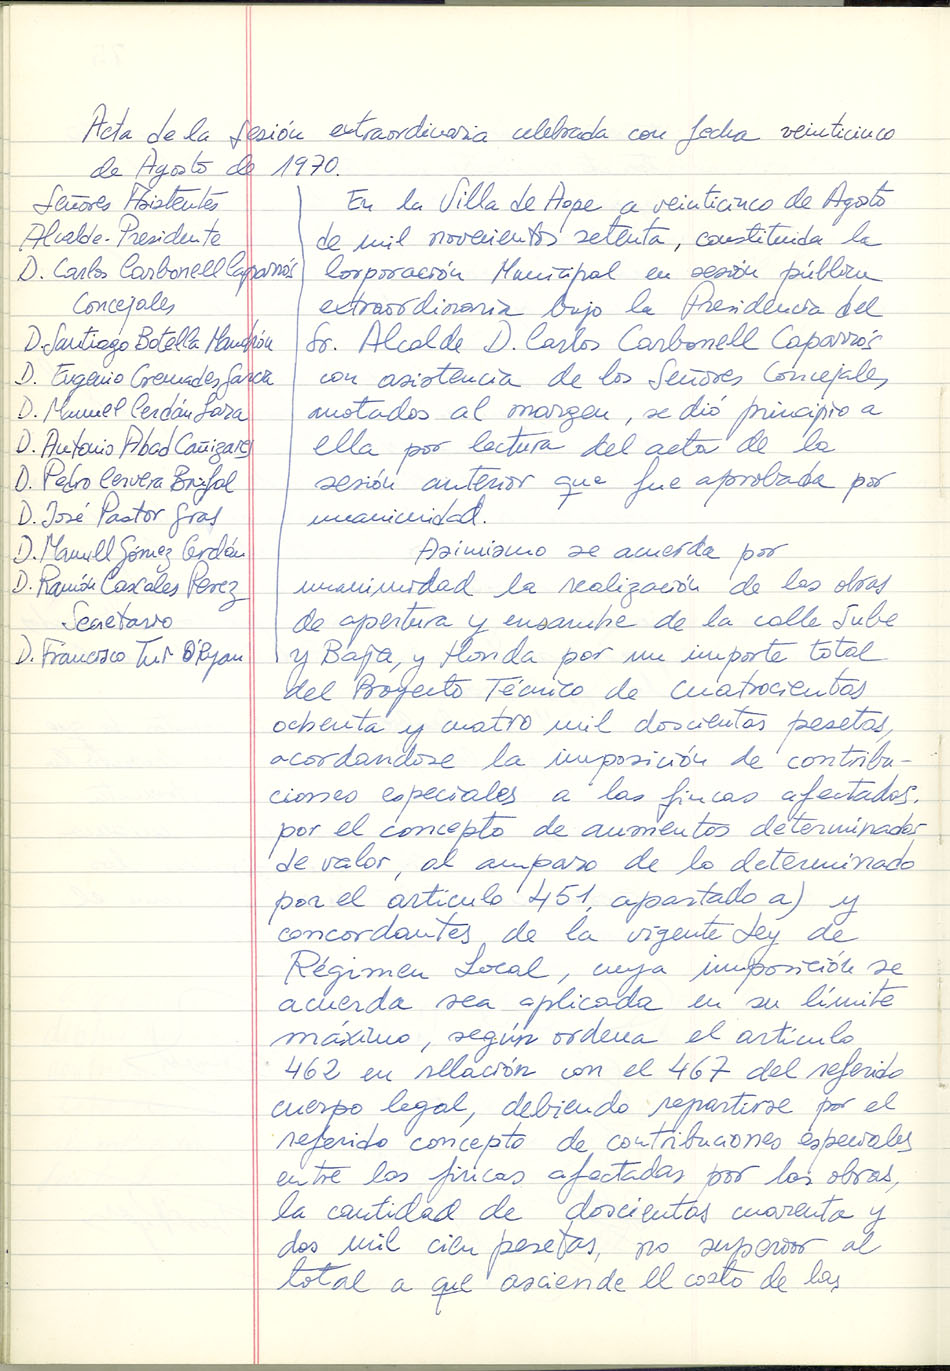 Acta de la Sesión extraordinaria celebrada con fecha veinticinco
de Agosto de 1970.
Señores Asistentes
Alcalde-Presidente
D. Carlos Carbonell Caparrós
Concejales
D. Santiago Botella
D. Eugenio Cremades García
D. Manuel Cerdán
D. Antonio Abad Cañizares
D. Pedro Cervera
D. José Pastor Gras
D. Manuel Gómez Cerdán
D. Ramón Cascales Perez
Secretario
D. Francisco Tur O'Ryan
En la Villa de Aspe a veinticinco de Agosto
de mil novecientos setenta, constituida la
Corporación Municipal en sesión pública
extraordinaria bajo la Presidencia del
Sr. Alcalde D. Carlos Carbonell Caparrós
con asistencia de los Señores Concejales
anotados al margen, se dió principio a
ella por lectura del acta de la
sesión anterior que fue aprobada por
unanimidad.
Asimismo se acuerda por
unanimidad la realización de las obras
de apertura y ensanche de la calle Sube
y Baja, y Honda por un importe total
del Proyecto Técnico de cuatrocientas
ochenta y cuatro mil doscientas pesetas,
acordandose la imposición de contribu-
ciones especiales a las fincas afectadas.
por el concepto de aumentos determinados
de valor, al amparo de lo determinado
por el articulo 451, apartado a) y
concordantes de la vigente Ley de
Régimen Local, cuya imposición se
acuerda sea aplicada en su límite
máximo, según ordena el artículo
462 en relación con el 467 del referido
cuerpo legal, debiendo repartirse por el
referido concepto de contribuciones especiales
entre las fincas afectadas por las obras,
la cantidad de doscientas cuarenta y
dos mil cien pesetas, no superior al
total a que asciende el costo de las